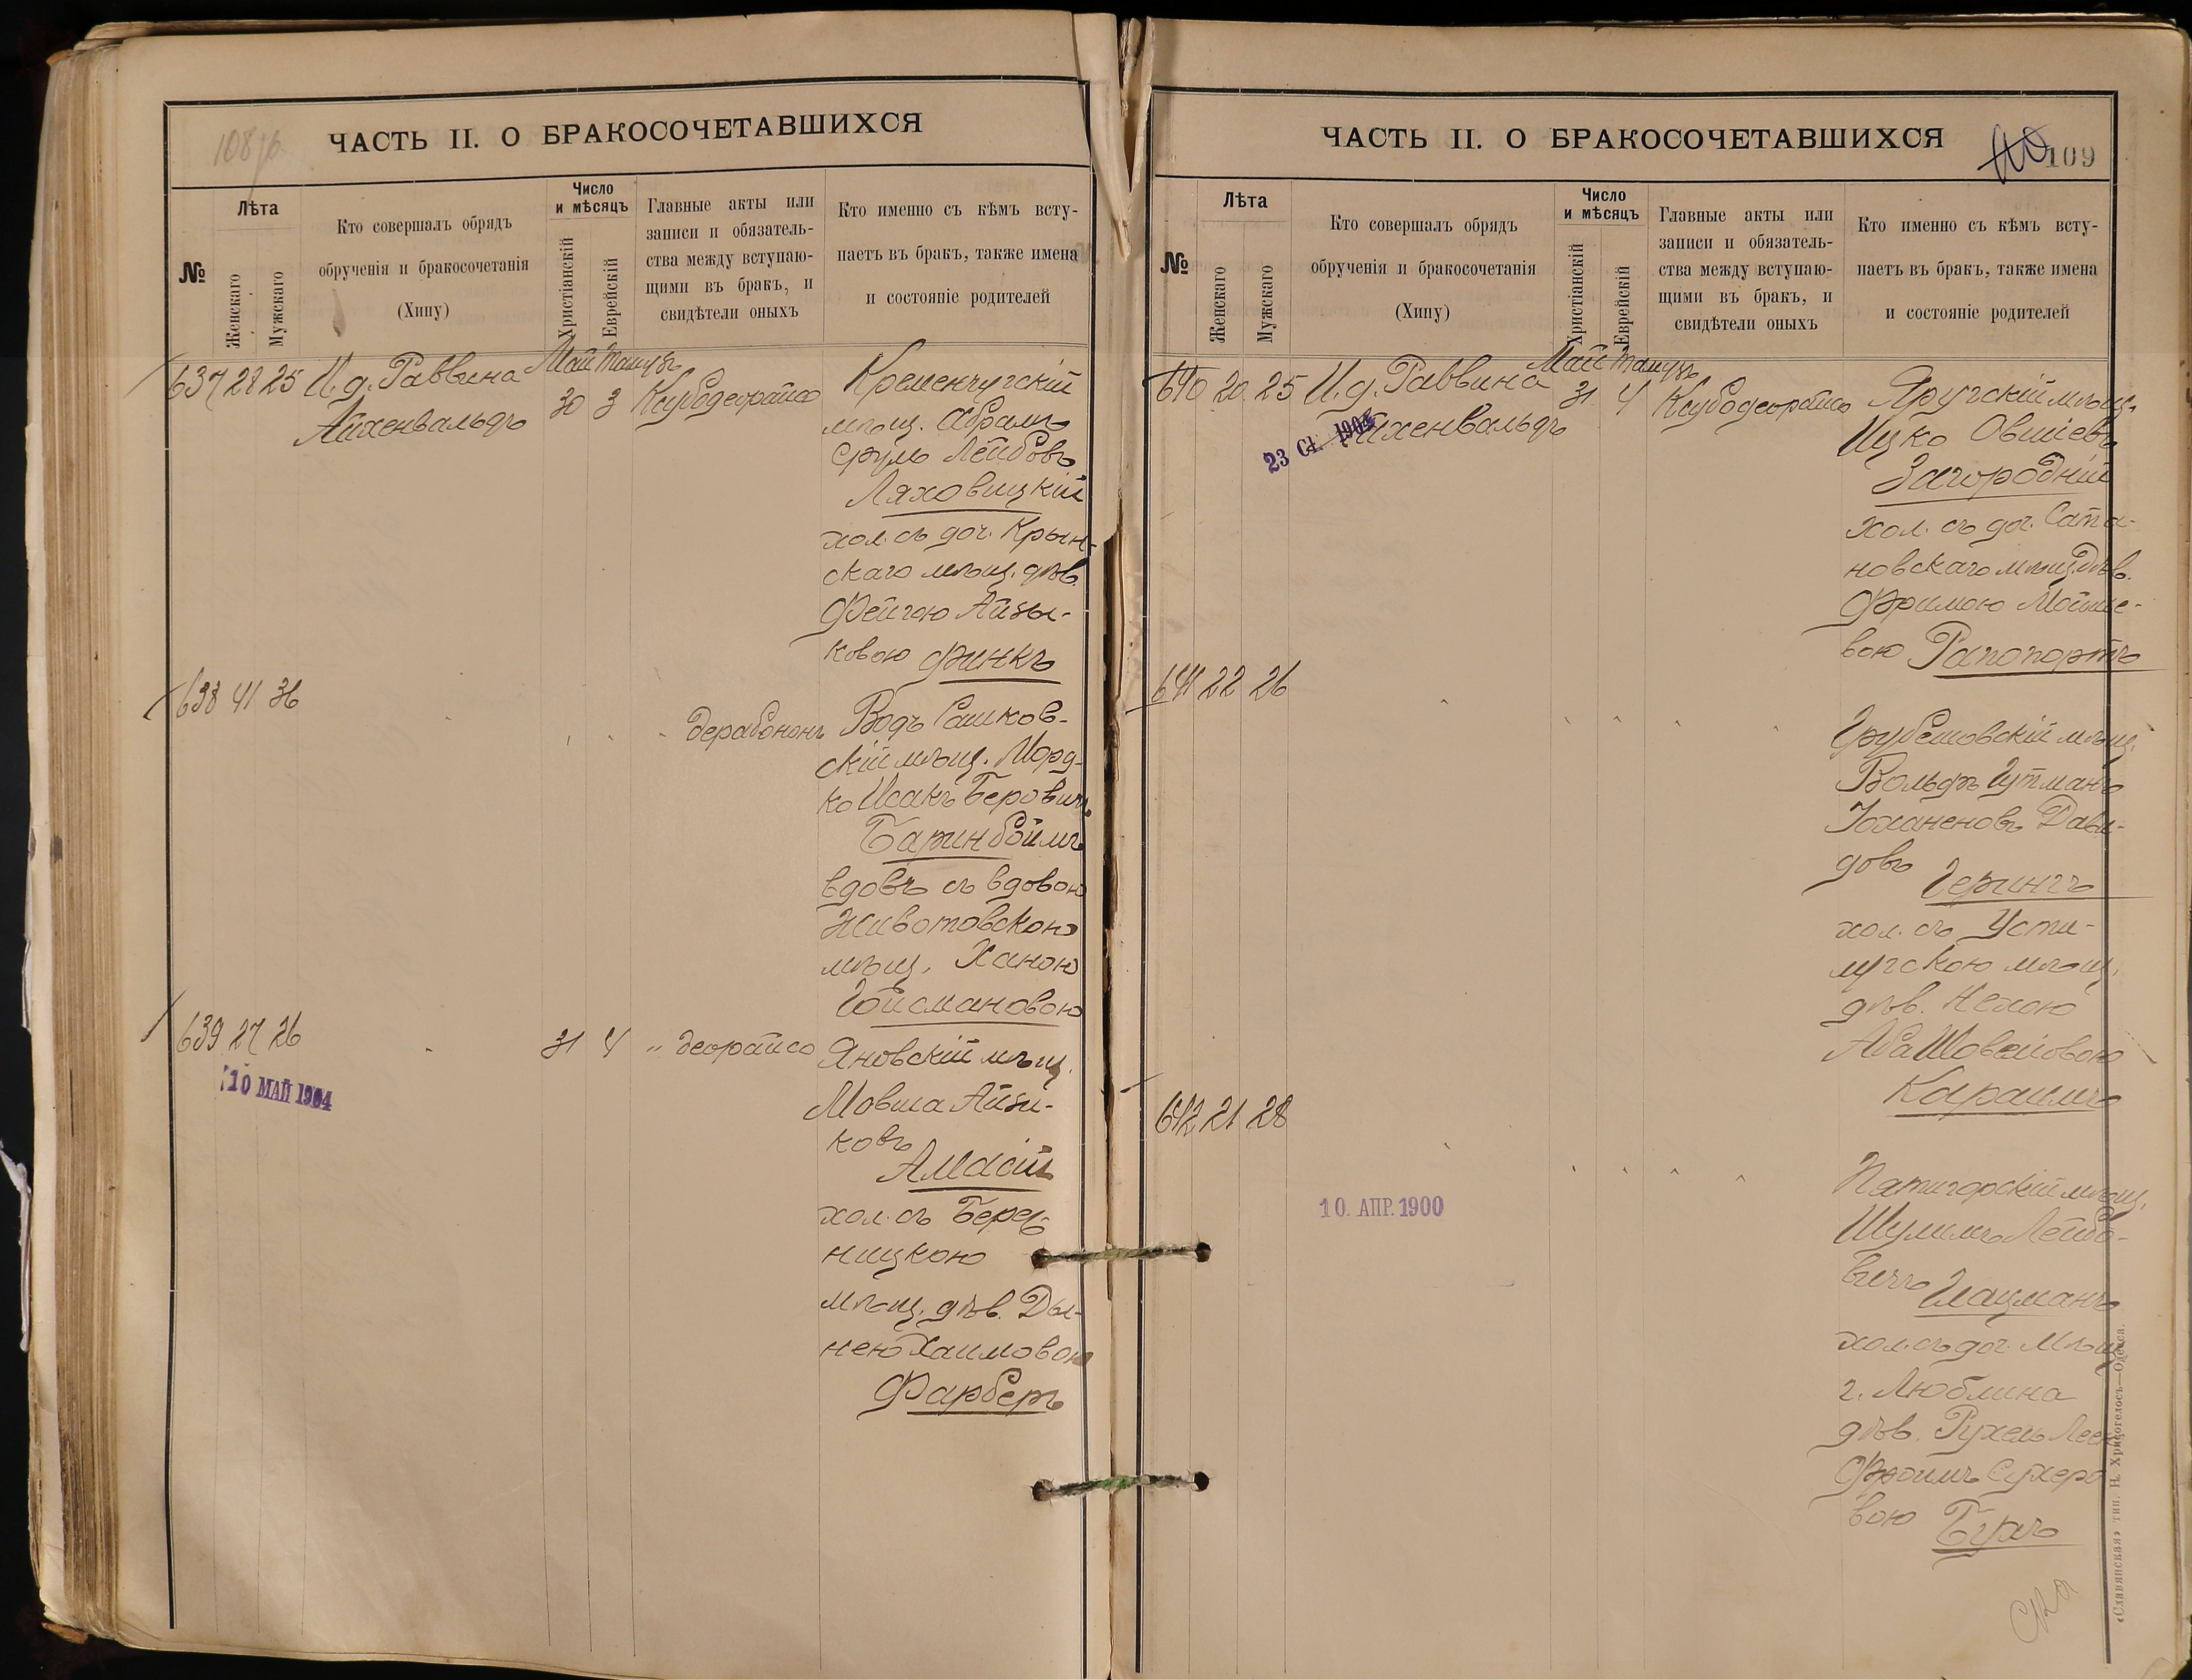 108 об.
ЧАСТЬ II. О БРАКОСОЧЕТАВШИХСЯ
№
Лѣта
Женскаго
Мужскаго
Кто совершалъ обрядъ
обрученія и бракосочетанія
(Хипу)
Число
и мѣсяцъ
Христіанскій
Еврейскій
Главные акты или
записи и обязатель-
ства между вступаю-
щими въ бракъ, и
свидѣтели оныхъ
Кто именно съ кѣмъ всту-
паетъ въ бракъ, также имена
и состояніе родителей
637 28 25 И. д. Раввина
Айхенвальдъ
Май Тамузъ
30 3 Ксубодеорайсо
Кременчугскій
мѣщ. Абрамъ
Сруль Лейбовъ
Ляховицкій
хол. съ доч. Крын-
скаго мѣщ. дѣв.
Фейгою Айзы-
ковою Финкъ
638 41 36
" дерабононъ
Водъ Сашков-
скій мѣщ. Морд-
ко Исакъ Беровичъ
Баринбоймъ
вдовъ съ вдовою
Животовскою
мѣщ. Ханою
Гойсмановою
639 27 26
31 4 " деорайсо
10 МАЙ 1904
Яновскій мѣщ.
Мовша Айзи-
ковъ
Амдій
хол. съ Берез-
ницкою
мѣщ. дѣв. Ды-
нею Хаимовою
Фарберъ
ЧАСТЬ II. О БРАКОСОЧЕТАВШИХСЯ
109
№
Лѣта
Женскаго
Мужскаго
Кто совершалъ обрядъ
обрученія и бракосочетанія
(Хипу)
Число
и мѣсяцъ
Христіанскій
Еврейскій
Главные акты или
записи и обязатель-
ства между вступаю-
щими въ бракъ, и
свидѣтели оныхъ
Кто именно съ кѣмъ всту-
паетъ въ бракъ, также имена
и состояніе родителей
640 20 25 И. д. Раввина
Айхенвальдъ
Май Тамузъ
31 4 Ксубодеорайсо
Яругскій мѣщ.
Ицко Овшіевъ
Загородній
хол. съ доч. Сата-
новскаго мѣщ. дѣв.
Фримою Мойше-
вою Рапопортъ
641 22 26
Грубешовскій мѣщ.
Вольфъ Гутманъ
Іоханеновъ Дави-
довъ
Герингъ
хол. съ Усти-
лугскою мѣщ.
дѣв. Нехою
Аба Шовеловою
Караимъ
642 21 28
10. АПР. 1900
Пятигорскій мѣщ.
Шулимъ Лейбо-
вичъ
Глацманъ
хол. съ доч. мѣщ.
г. Люблина
дѣв. Рухель Леею
Фроимъ Сухеро
вою Бухъ
«Славянская» тип. Н. Хрисогелосъ—Одесса.